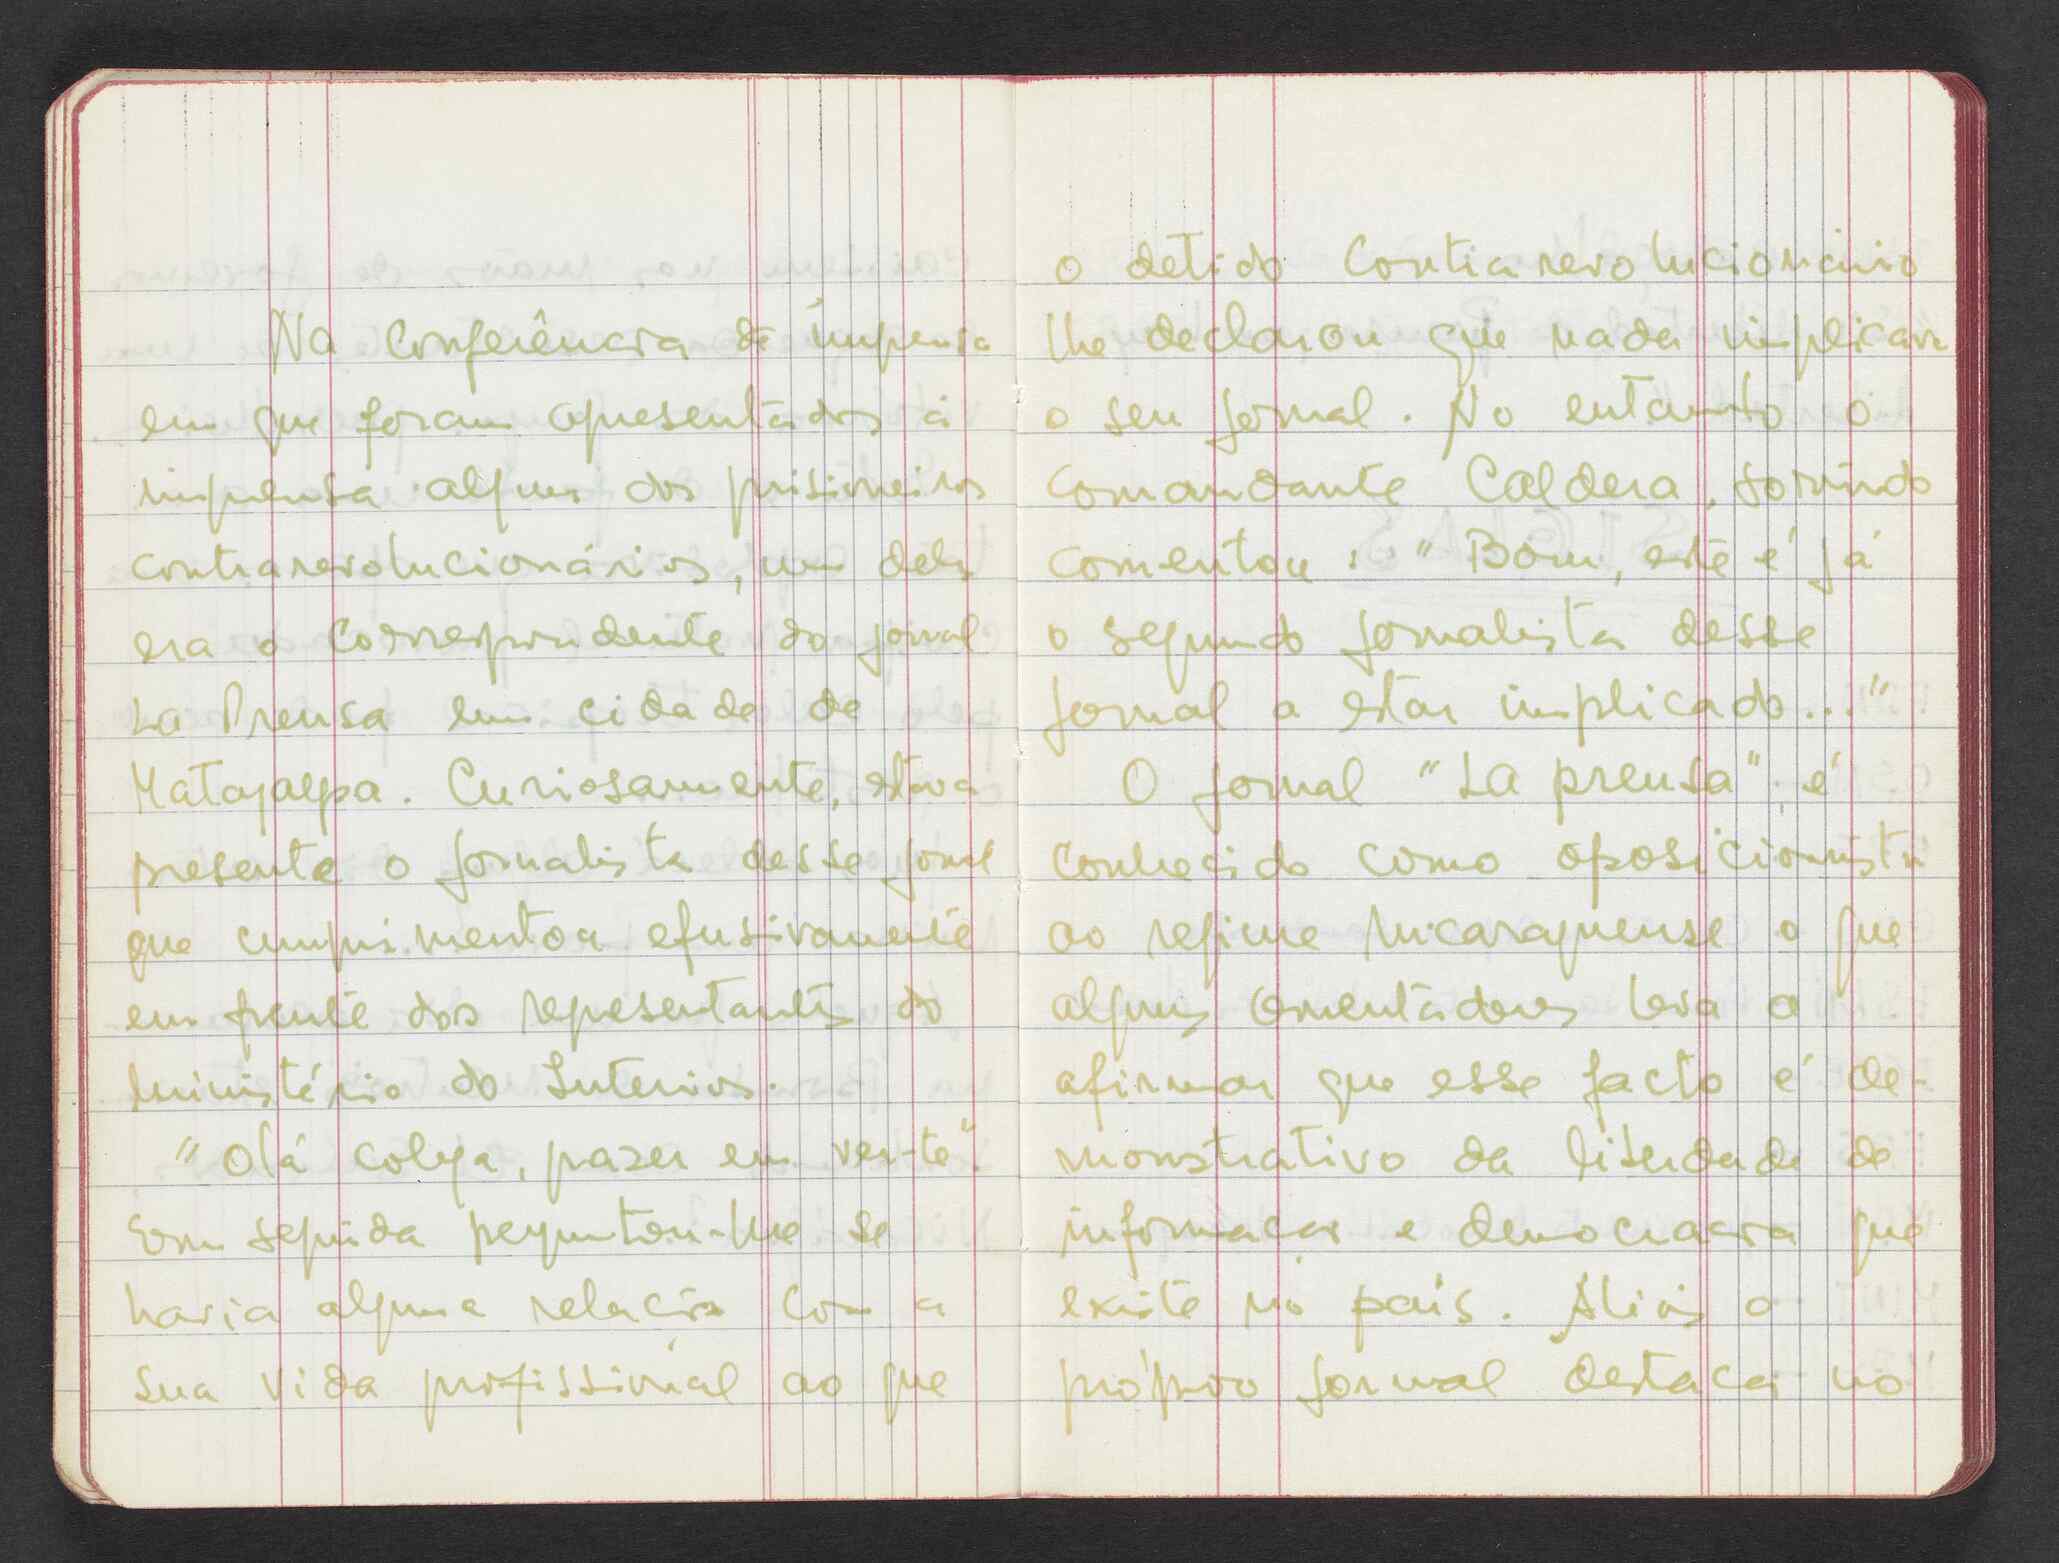 Na Conferência de impensa
em que foram apresentados à
impensa alguns dos prisioneiros
contrarevolucionários, um deles
era o correspondente do jornal
La Prensa em cidade de
Matagalpa. Curiosamente, estava
presente o jornalista desse jornal
que cumprimentou efusivamente
em frente dos representantes do
Ministério do Interior.
"Olá colega, prazer em ver-te"
Em seguida perguntou-lhe se
havia alguma relação com a
sua vida profissional ao que
o detido Contrarevolucionário
lhe declarou que nada implicava
o seu jornal. No entanto o
Comandante Caldera, sorrindo
comentou: "Bom, este é já
o segundo jornalista desse
jornal a estar implicado..."
O jornal "La prensa", é
conhecido como oposicionista
ao regime nicaraguense o que
alguns comentadores leva a
afirmar que esse facto é de-
monstrativo da liberdade de
informação e democracia que
existe no país. Aliás o
próprio jornal destaca no